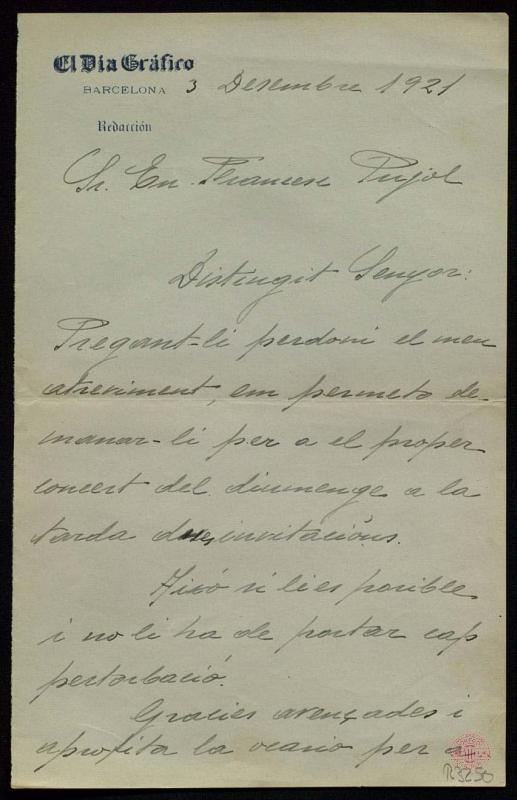 El Dia Gráfico
BARCELONA 3 Desembre 1921
Redacción
Sr. En. Francesc Pujol
Distingit Senyor:
Pregant-li perdoni el meu
atreviment, em permeto de-
manar-li per a el proper
concert del diumenge a la
tarda dues invitacións.
Aixó si li es posible
i no li ha de portar cap
pertorbació.
Gracies avençades i
aprofita la ocasio per a
R3250